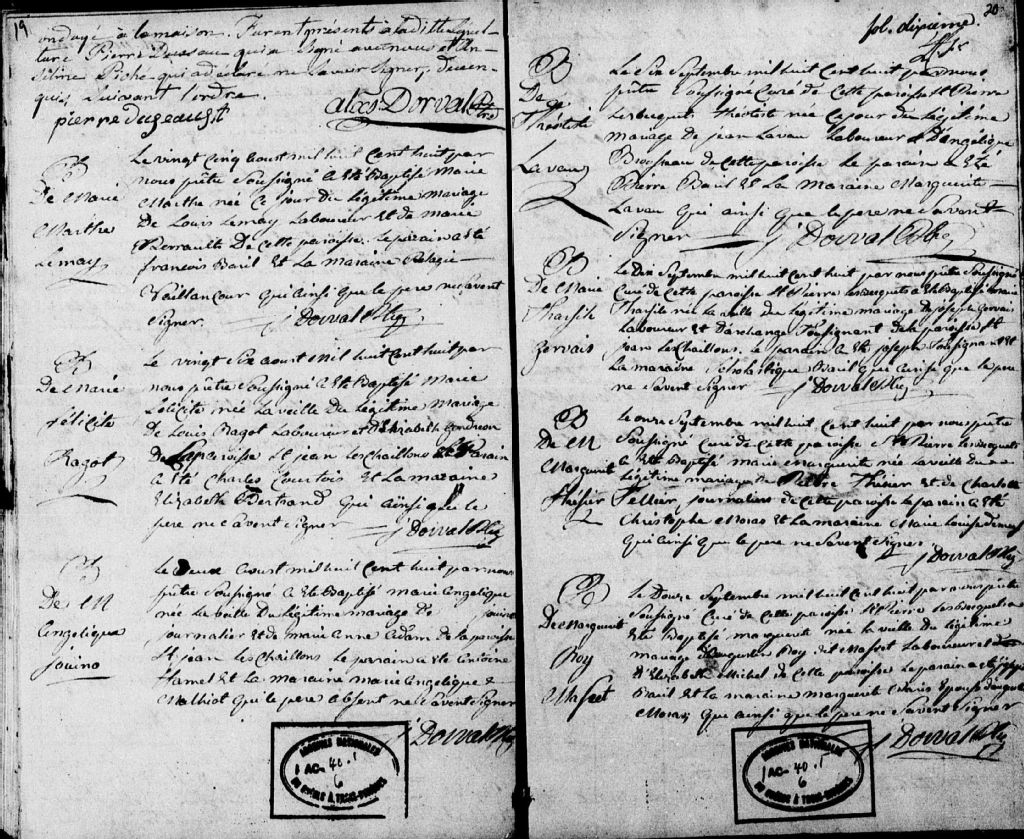 19
ondoyé à la maison. Furent présents à la ditte sepul-
ture Pierre Duseau qui a signé avec nous et An-
selme Piché qui a déclaré ne savoir signer, de ce en-
quis suivant l'ordre.
pierre duseault alexs Dorval Ptre
B
De Marie
Marthe
Lemay
Le vingt cinq aoust mil huit cent huit par
nous prêtre soussigné a été Baptisé Marie
Marthe née ce jour du légitime mariage
De Louis Lemay Laboureur et de marie
Perrault De cette paroisse. Le parain a été
francois Baril et La maraine
Vaillancour qui ainsi que le pere ne savent
signer. Dorval
B
De Marie
félicité
Ragot
Le vingt six aoust mil huit cent huit par
nous prêtre soussigné a été Baptisé Marie
félicité née La veille Du légitime mariage
De Louis Ragot Laboureur et D'Elizabeth
De La paroisse St jean les chaillons Le Parain
a été Charles Courtois et La maraine
Elizabeth Bertrand qui ainsi que le
pere ne savent signer Dorval
B
De M
Angelique
Le Deux aoust mil huit cent huit par nous
prêtre soussigné a été Baptisé marie angelique
née La veille Du légitime mariage De
journalier et de marie anne adam de la paroisse
St jean les chaillons Le parain a été antoine
hamel et La maraine marie angelique
Mathiot qui le pere absent ne savent signer
Dorval
ARCHIVES NATIONALES
1 AC- 40.1
6
DU QUÉBEC À TROIS-RIVIÈRES
20
fol. dixieme.
B
De
Théotiste
Lavau
Le six septembre mil huit cent huit par nous
prêtre soussigné curé de cette paroisse St Pierre
Les becquets théotiste née ce jour du légitime
mariage de jean Lavau Laboureur et D'angélique
Brousseau de cette paroisse Le parain a été
Pierre Baril et La maraine Marguerite
Lavau qui ainsi que le pere ne savent
signer Dorval
B
De Marie
tharsile
Gervais
Le Dix septembre mil huit cent huit par nous prêtre soussigné
curé de cette paroisse St Pierre les becquets a été Baptisé marie
tharsile née La veille Du légitime mariage De joseph Gervais
Laboureur et D'archange Toussignant de la paroisse St
jean Les chaillons. Le parain a été joseph Toussignant et
La maraine Scholastique Baril qui ainsi que le pere
ne savent signer Dorval
B
De M
Marguerite
thésier
Le onze septembre mil huit cent huit par nous prêtre
soussigné curé de cette paroisse St Pierre les becquets
a été Baptisé marie marguerite née La veille du
légitime mariage de thésier et de Charlotte
Tellier, journalier de cette paroisse le parain a été
Christophe Moras et La maraine Marie Louise
qui ainsi que le pere ne savent signer
Dorval
B
De Marguerite
Roy
Masset
Le Douze septembre mil huit cent huit par nous prêtre
soussigné curé de cette paroisse St Pierre Les Becquets a
été Baptisé marguerite née la veille du légitime
mariage D'augustin Roy dit Masset Laboureur et
D'Elizabeth Michel de cette paroisse Le parain a été
Baril et La maraine marguerite
Moras Qui ainsi que le pere ne savent signer
Dorval
ARCHIVES NATIONALES
1 AC- 40.1
6
DU QUÉBEC À TROIS-RIVIÈRES